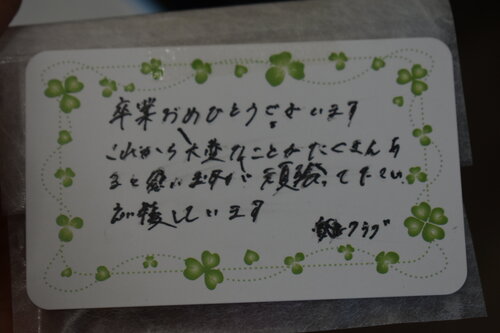 卒業おめでとうございます
これから大変なことがたくさんあ
ると思いますが頑張って下さい
応援しています
クラブ